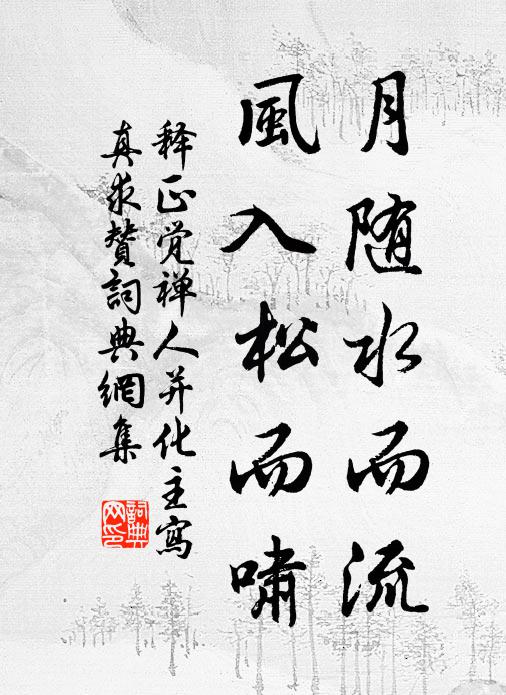 月随水而流
風入松而嘯
释正觉禅人并化主寫
真求賛詞典網集
詞典
网印